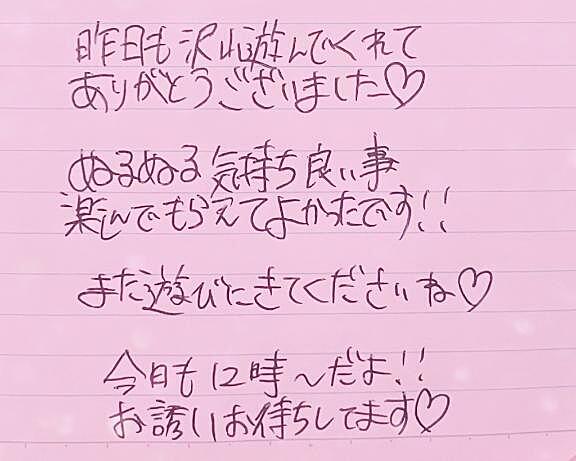 昨日も沢山遊んでくれて
ありがとうございました♡
ぬるぬる気持ち良い事
楽しんでもらえてよかったです!!
また遊びにきてくださいね♡
今日も12時〜だよ!!
お誘いお待ちしてます♡